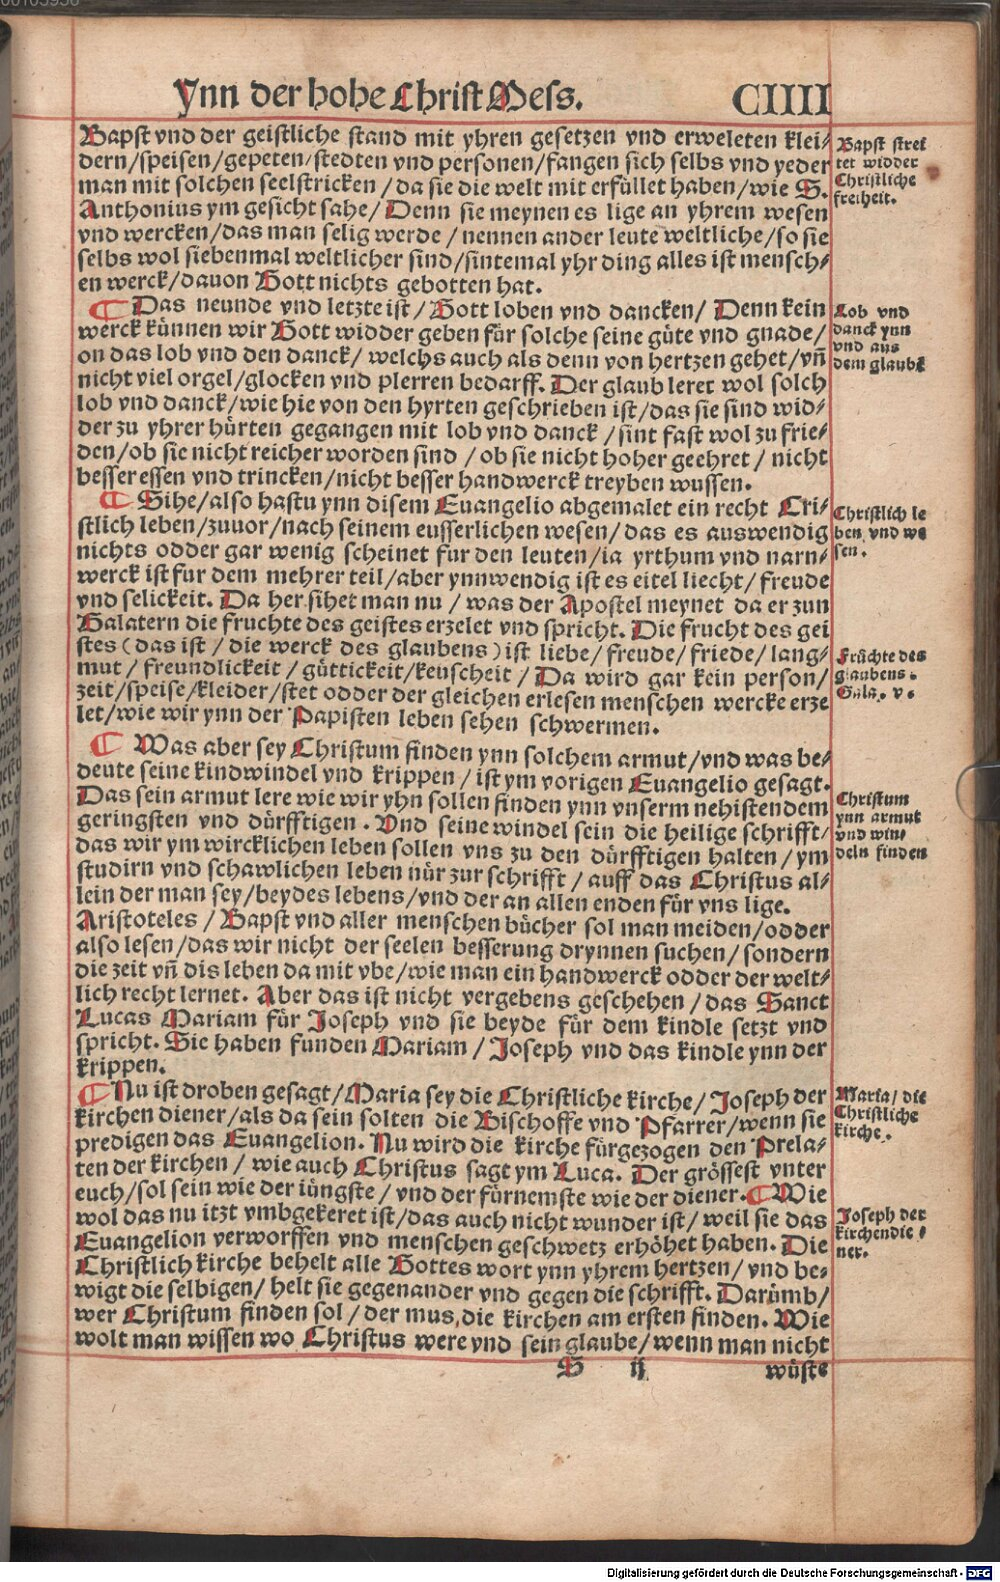 Ynn der hohe Christ Mess. CIIII
Bapst vnd der geistliche stand mit yhren gesetzen vnd erweleten klei⸗
dern/speisen/gepeten/stedten vnd personen/fangen sich selbs vnd yeder
man mit solchen seelstricken/da sie die welt mit erfüllet haben/wie S.
Anthonius ym gesicht sahe/Denn sie meynen es lige an yhrem wesen
vnd wercken/das man selig werde/nennen ander leute weltliche/so sie
selbs wol siebenmal weltlicher sind/sintemal yhr ding alles ist mensch⸗
en werck/dauon Gott nichts gebotten hat.
Bapst strei
tet widder
Christliche
freiheit.
¶ Das neunde vnd letzte ist/Gott loben vnd dancken/Denn kein
werck künnen wir Gott widder geben für solche seine güte vnd gnade/
on das lob vnd den danck/welchs auch als denn von hertzen gehet/vñ
nicht viel orgel/glocken vnd plerren bedarff. Der glaub leret wol solch
lob vnd danck/wie hie von den hyrten geschrieben ist/das sie sind wid⸗
der zu yhrer hürten gegangen mit lob vnd danck/sint fast wol zu frie⸗
den/ob sie nicht reicher worden sind/ob sie nicht hoher geehret/nicht
besser essen vnd trincken/nicht besser handwerck treyben wussen.
Lob vnd
danck ynn
vnd aus
dem glaubē
¶ Sihe/also hastu ynn disem Euangelio abgemalet ein recht Cri⸗
stlich leben/zuuor/nach seinem eusserlichen wesen/das es auswendig
nichts odder gar wenig scheinet fur den leuten/ia yrthum vnd narn⸗
werck ist fur dem mehrer teil/aber ynnwendig ist es eitel liecht/freude
vnd selickeit. Da her sihet man nu/was der Apostel meynet da er zun
Galatern die fruchte des geistes erzelet vnd spricht. Die frucht des gei
stes (das ist/die werck des glaubens) ist liebe/freude/friede/lang⸗
mut/freundlickeit/güttickeit/keuscheit/Da wird gar kein person/
zeit/speise/kleider/stet odder der gleichen erlesen menschen wercke erze
let/wie wir ynn der Papisten leben sehen schwermen.
Christlich le
ben vnd we
sen.
Früchte des
glaubens.
Gala. v.
¶ Was aber sey Christum finden ynn solchem armut/vnd was be⸗
deute seine kindwindel vnd krippen/ist ym vorigen Euangelio gesagt.
Das sein armut lere wie wir yhn sollen finden ynn vnserm nehistendem
geringsten vnd dürfftigen. Vnd seine windel sein die heilige schrifft/
das wir ym wircklichen leben sollen vns zu den dürfftigen halten/ym
studirn vnd schawlichen leben nür zur schrifft/auff das Christus al⸗
lein der man sey/beydes lebens/vnd der an allen enden für vns lige.
Aristoteles/Bapst vnd aller menschen bücher sol man meiden/odder
also lesen/das wir nicht der seelen besserung drynnen suchen/sondern
die zeit vñ dis leben da mit vbe/wie man ein handwerck odder der welt⸗
lich recht lernet. Aber das ist nicht vergebens geschehen/das Sanct
Lucas Mariam für Joseph vnd sie beyde für dem kindle setzt vnd
spricht. Sie haben funden Mariam/Joseph vnd das kindle ynn der
krippen.
Christum
ynn armut
vnd win⸗
deln finden
¶ Nu ist droben gesagt/Maria sey die Christliche kirche/Joseph der
kirchen diener/als da sein solten die Bischoffe vnd Pfarrer/wenn sie
predigen das Euangelion. Nu wird die kirche fürgezogen den Prela⸗
ten der kirchen/wie auch Christus sagt ym Luca. Der grössest vnter
euch/sol sein wie der iüngste/vnd der fürnemste wie der diener. ¶ Wie
wol das nu itzt vmbgekeret ist/das auch nicht wunder ist/weil sie das
Euangelion verworffen vnd menschen geschwetz erhöhet haben. Die
Christlich kirche behelt alle Gottes wort ynn yhrem hertzen/vnd be⸗
wigt die selbigen/helt sie gegenander vnd gegen die schrifft. Darümb/
wer Christum finden sol/der mus die kirchen am ersten finden. Wie
wolt man wissen wo Christus were vnd sein glaube/wenn man nicht
Maria/die
Christliche
kirche.
Joseph der
kirchendie⸗
ner.
S ij wüste
Digitalisierung gefördert durch die Deutsche Forschungsgemeinschaft - DFG